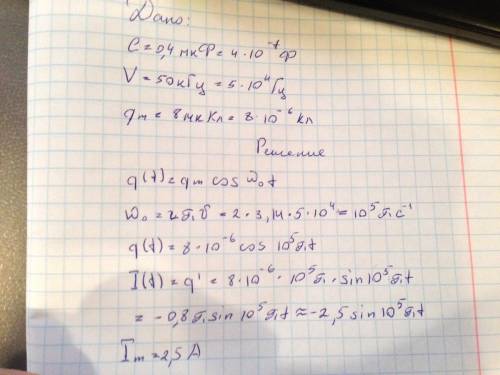 Дано:
C = 0,4 мкФ = 4 · 10⁻⁷ Ф
V = 50 кГц = 5 · 10⁴ Гц
qm = 8 мкКл = 8 · 10⁻⁶ Кл
Решение
q(t) = qm cos ω₀t
ω₀ = 2πν = 2 · 3,14 · 5 · 10⁴ = 10⁵π с⁻¹
q(t) = 8 · 10⁻⁶ cos 10⁵πt
I(t) = q' = 8 · 10⁻⁶ · 10⁵π · sin 10⁵πt
= -0,8π sin 10⁵πt ≈ -2,5 sin 10⁵πt
Im = 2,5 A